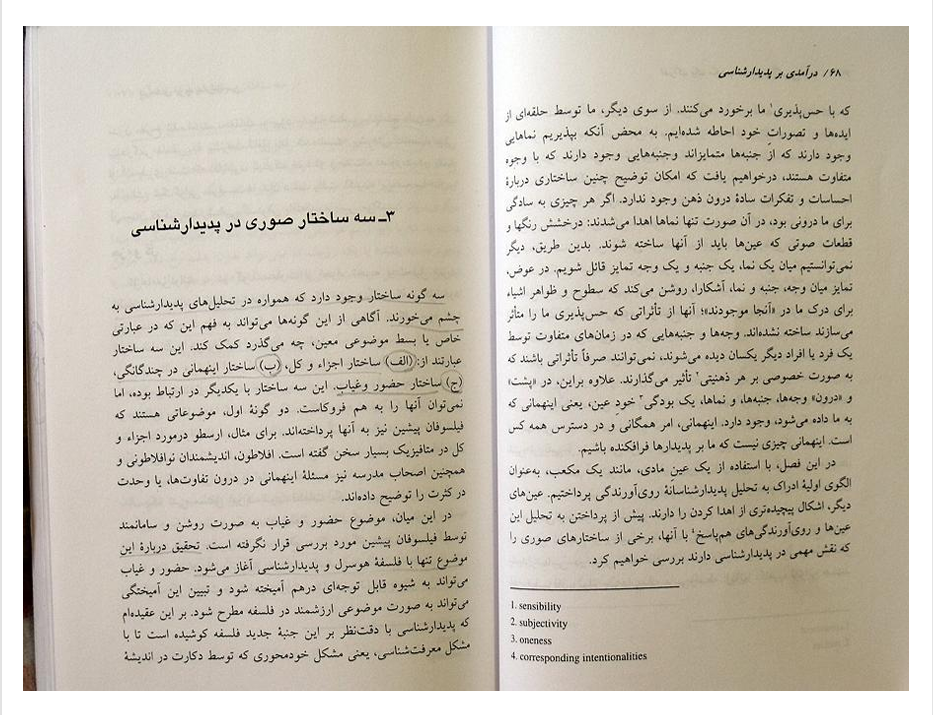 ۶۸/ درآمدی بر پدیدارشناسی
که با حس‌پذیری۱ ما برخورد می‌کنند. از سوی دیگر، ما توسط حلقه‌ای از
ایده‌ها و تصورات خود احاطه شده‌ایم. به محض آنکه بپذیریم نماهایی
وجود دارند که از جنبه‌ها متمایزاند وجنبه‌هایی وجود دارند که با وجوه
متفاوت هستند، درخواهیم یافت که امکان توضیح چنین ساختاری دربارهٔ
احساسات و تفکرات سادهٔ درون ذهن وجود ندارد. اگر هر چیزی به سادگی
برای ما درونی بود، در آن صورت تنها نماها اهدا می‌شدند: درخشش رنگها و
قطعات صوتی که عین‌ها باید از آنها ساخته شوند. بدین طریق، دیگر
نمی‌توانستیم میان یک نما، یک جنبه و یک وجه تمایز قائل شویم. در عوض،
تمایز میان وجه، جنبه و نما، آشکارا، روشن می‌کند که سطوح و ظواهر اشیاء
برای درک ما در «آنجا موجودند»؛ آنها از تأثراتی که حس‌پذیری ما را متأثر
می‌سازند ساخته نشده‌اند. وجه‌ها و جنبه‌هایی که در زمان‌های متفاوت توسط
یک فرد یا افراد دیگر یکسان دیده می‌شوند، نمی‌توانند صرفاً تأثراتی باشند که
به صورت خصوصی بر هر ذهنیتی۲ تأثیر می‌گذارند. علاوه براین، در «پشت»
و «درون» وجه‌ها، جنبه‌ها، و نماها، یک بودگی۳ خود عین، یعنی اینهمانی که
به ما داده می‌شود، وجود دارد. اینهمانی، امر همگانی و در دسترس همه کس
است. اینهمانی چیزی نیست که ما بر پدیدارها فرافکنده باشیم.
در این فصل، با استفاده از یک عین مادی، مانند یک مکعب، به‌عنوان
الگوی اولیهٔ ادراک به تحلیل پدیدارشناسانهٔ روی‌آورندگی پرداختیم. عین‌های
دیگر، اشکال پیچیده‌تری از اهدا کردن را دارند. پیش از پرداختن به تحلیل این
عین‌ها و روی‌آورندگی‌های هم‌پاسخ۴ با آنها، برخی از ساختارهای صوری را
که نقش مهمی در پدیدارشناسی دارند بررسی خواهیم کرد.
1. sensibility
2. subjectivity
3. oneness
4. corresponding intentionalities
۳ـ سه ساختار صوری در پدیدارشناسی
سه گونه ساختار وجود دارد که همواره در تحلیل‌های پدیدارشناسی به
چشم می‌خورند. آگاهی از این گونه‌ها می‌تواند به فهم این که در عبارتی
خاص یا بسط موضوعی معین، چه می‌گذرد کمک کند. این سه ساختار
عبارتند از: (الف) ساختار اجزاء و کل، (ب) ساختار اینهمانی در چندگانگی،
(ج) ساختار حضور وغیاب. این سه ساختار با یکدیگر در ارتباط بوده، اما
نمی‌توان آنها را به هم فروکاست. دو گونهٔ اول، موضوعاتی هستند که
فیلسوفان پیشین نیز به آنها پرداخته‌اند. برای مثال، ارسطو درمورد اجزاء و
کل در متافیزیک بسیار سخن گفته است. افلاطون، اندیشمندان نوافلاطونی و
همچنین اصحاب مدرسه نیز مسئلهٔ اینهمانی در درون تفاوت‌ها، یا وحدت
در کثرت را توضیح داده‌اند.
در این میان، موضوع حضور و غیاب به صورت روشن و سامانمند
توسط فیلسوفان پیشین مورد بررسی قرار نگرفته است. تحقیق دربارهٔ این
موضوع تنها با فلسفهٔ هوسرل و پدیدارشناسی آغاز می‌شود. حضور و غیاب
می‌تواند به شیوه قابل توجه‌ای درهم آمیخته شود و تبیین این آمیختگی
می‌تواند به صورت موضوعی ارزشمند در فلسفه مطرح شود. بر این عقیده‌ام
که پدیدارشناسی با دقت‌نظر بر این جنبهٔ جدید فلسفه کوشیده است تا با
مشکل معرفت‌شناسی، یعنی مشکل خودمحوری که توسط دکارت در اندیشهٔ